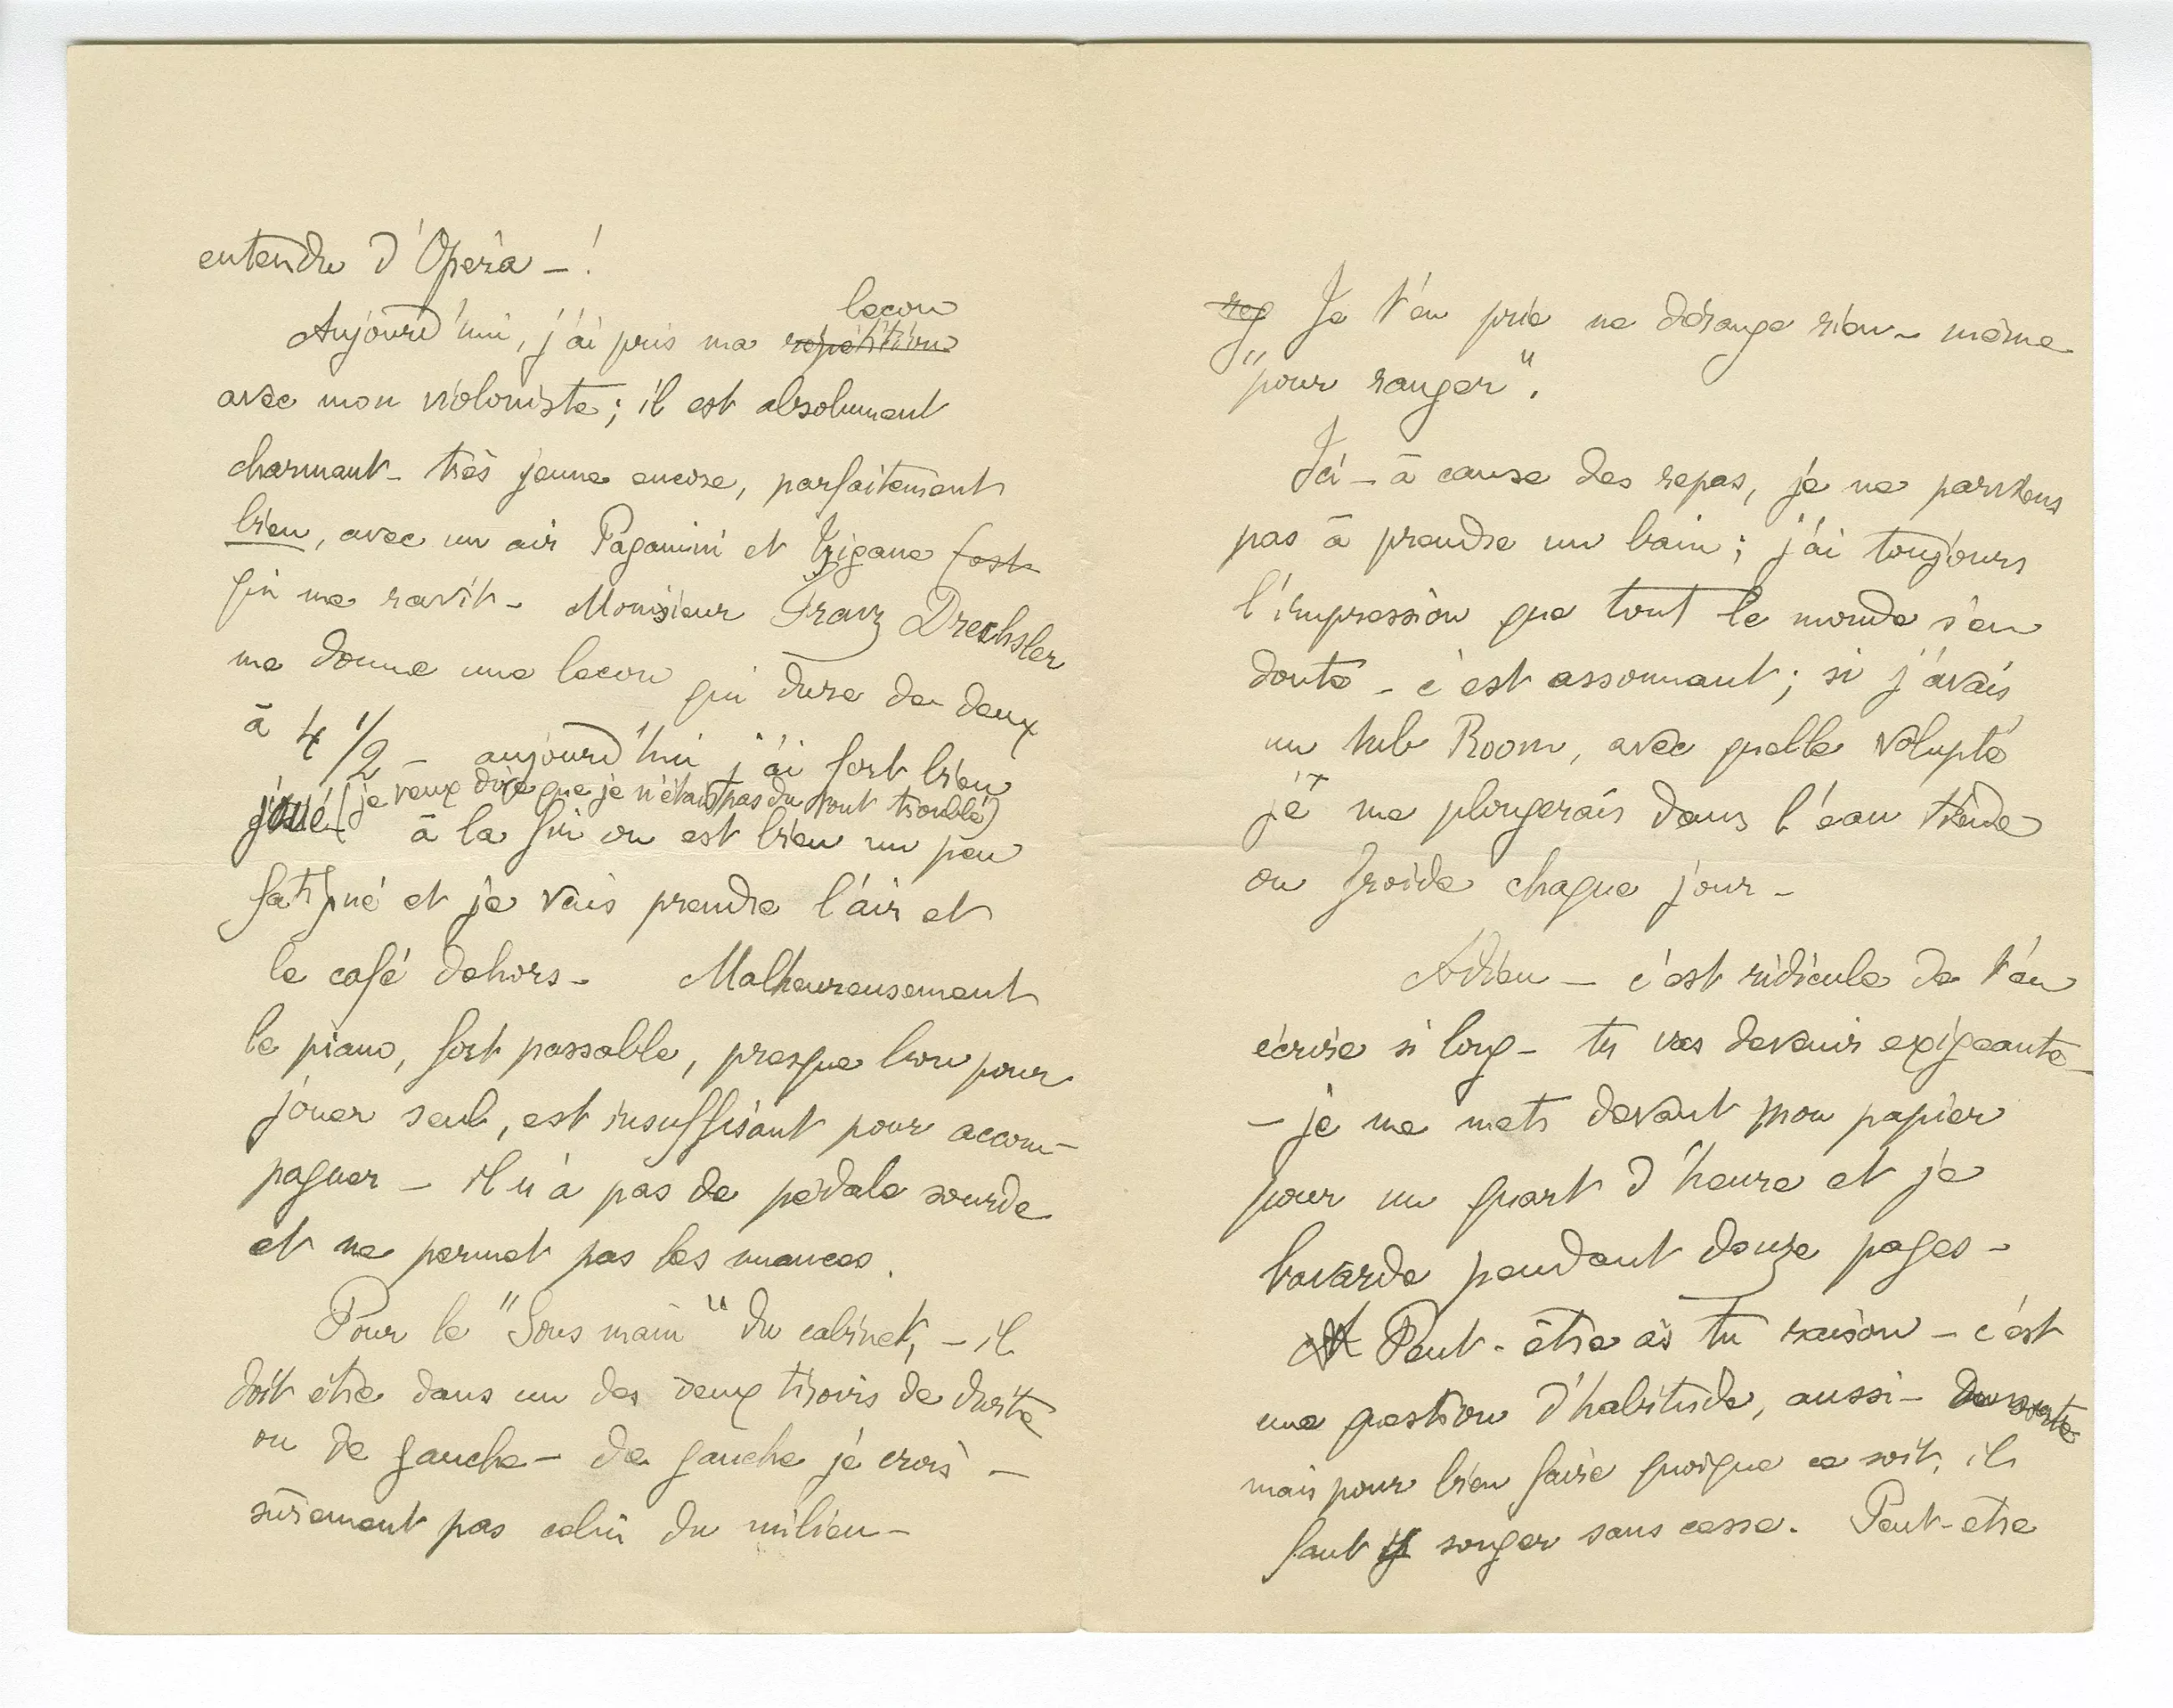 entendu d'Opéra - !
Aujourd'hui, j'ai pris ma répétition leçon
avec mon violoniste ; il est absolument
charmant - très jeune encore, parfaitement
bien, avec un air Paganini et Tzigane (est
qui me ravit - Monsieur Franz Drechsler
me donne une leçon qui dure de deux
à 4 1/2 - aujourd'hui j'ai fort bien
joué (je veux dire que je n'étais pas du tout troublé)
à la fin on est bien un peu
fatigué et je vais prendre l'air et
le café dehors - Malheureusement
le piano, fort passable, presque bon pour
jouer seul, est insuffisant pour accom-
pagner - il n'a pas de pédale sourde
et ne permet pas les nuances.
Pour le "Sous main" du cabinet, - il
doit être dans un des deux tiroirs de droite
ou de gauche - de gauche je crois -
sûrement pas celui du milieu -
Je t'en prie ne dérange rien - même
"pour ranger".
Ici - à cause des repas, je ne parviens
pas à prendre un bain ; j'ai toujours
l'impression que tout le monde s'en
doute - c'est assommant ; si j'avais
un tub Room, avec quelle volupté
je me plongerais dans l'eau tiède
ou froide chaque jour -
Adieu - c'est ridicule de t'en
écrire si long - tu vas devenir exigeante -
- je me mets devant mon papier
pour un quart d'heure et je
bavarde pendant douze pages -
Peut-être as tu raison - c'est
une question d'habitude, aussi -
mais pour bien faire quoique ce soit, il
faut y songer sans cesse. Peut-etre